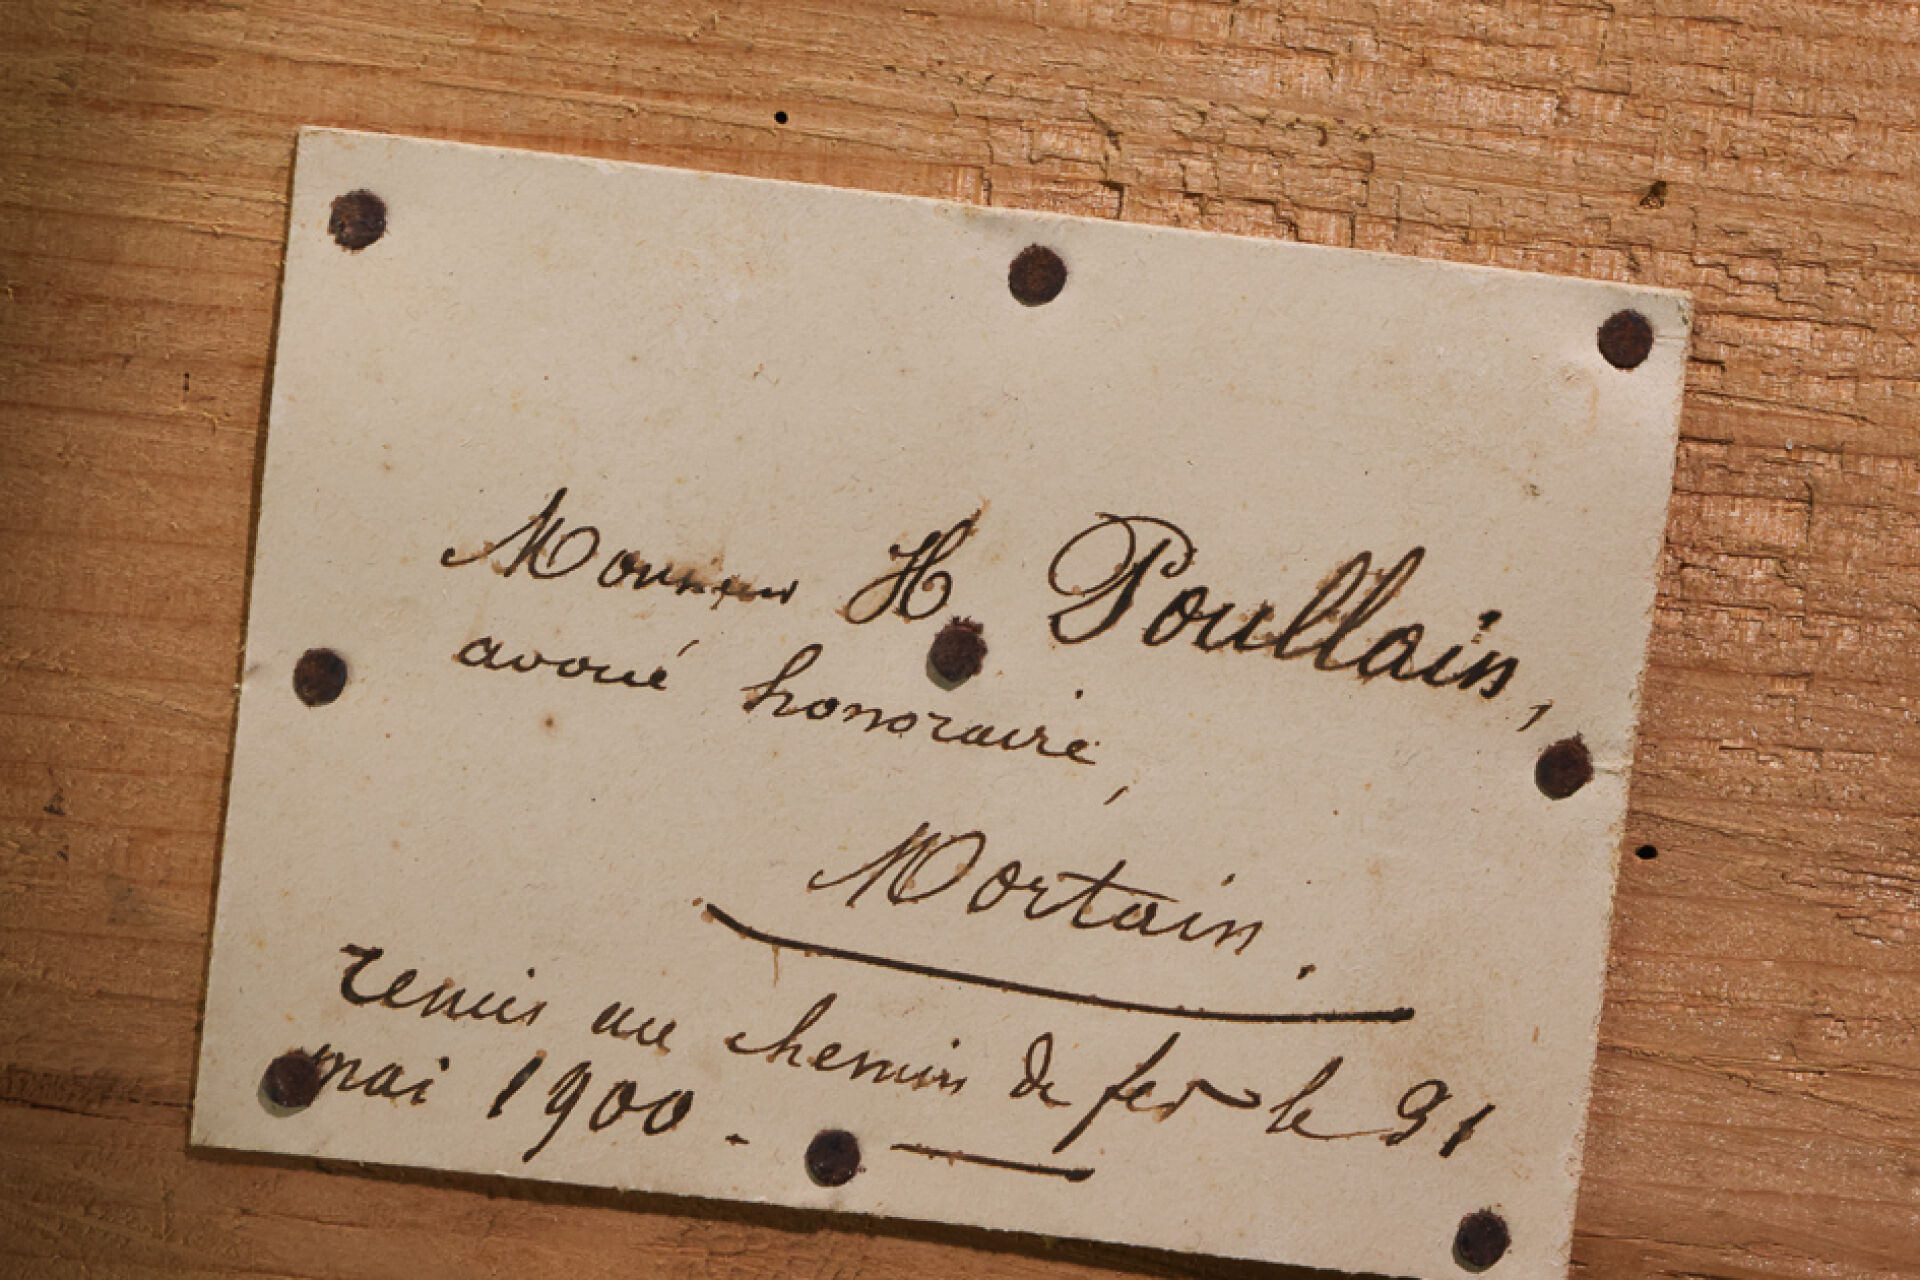 Monsieur H. Poullain,
avoué honoraire,
Mortain.
remis au chemin de fer le 31
mai 1900.